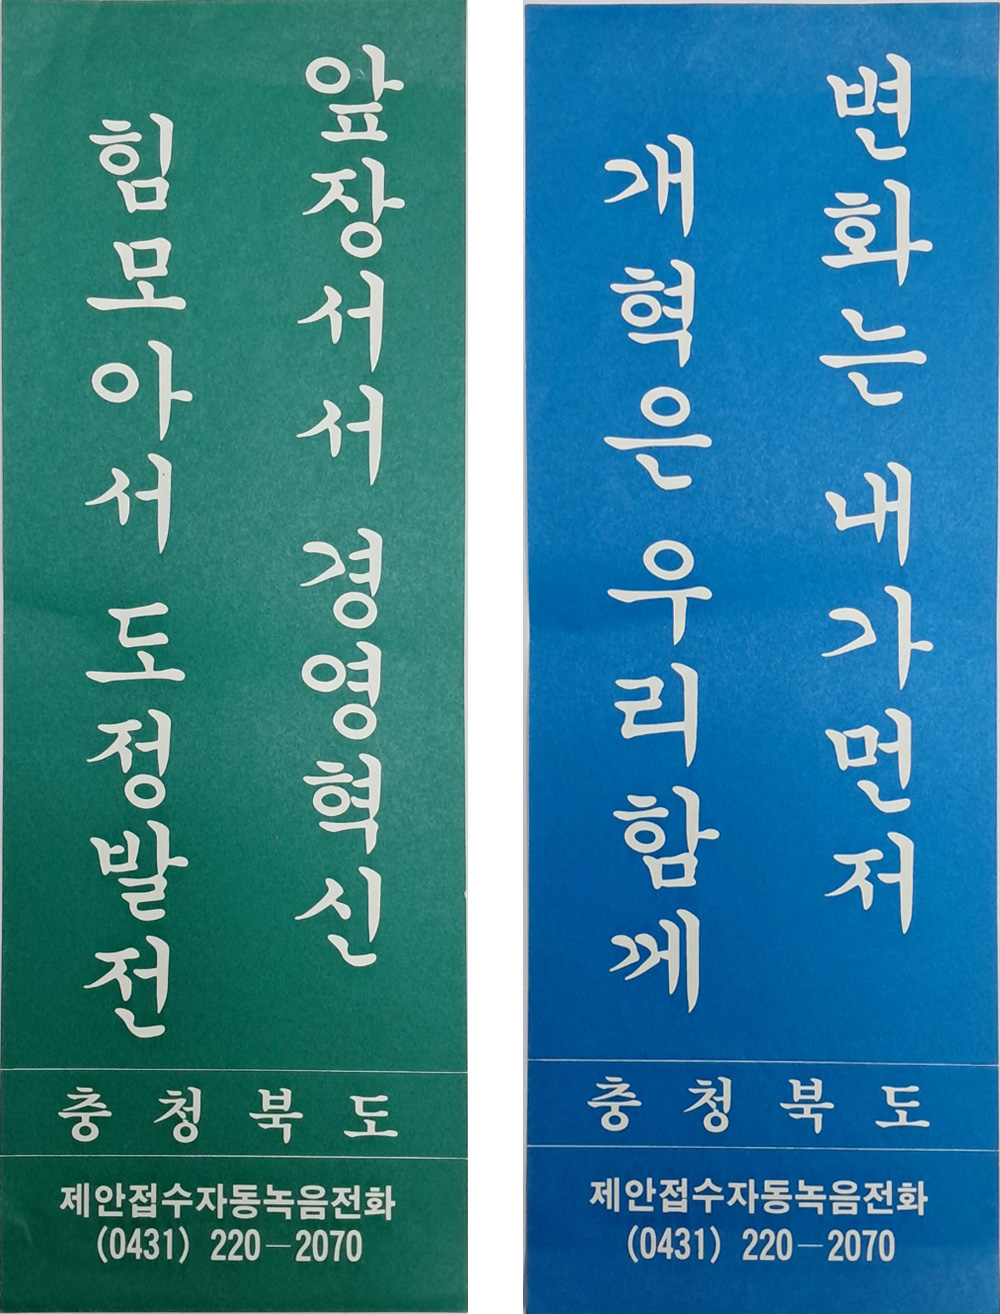 앞장서서 경영혁신
힘모아서 도정발전
충청북도
제안접수자동녹음전화
(0431) 220-2070
변화는 내가먼저
개혁은 우리함께
충청북도
제안접수자동녹음전화
(0431) 220-2070